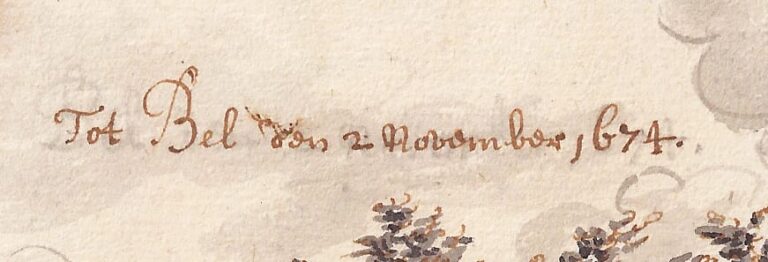 Tot Bel den 2 November 1674.